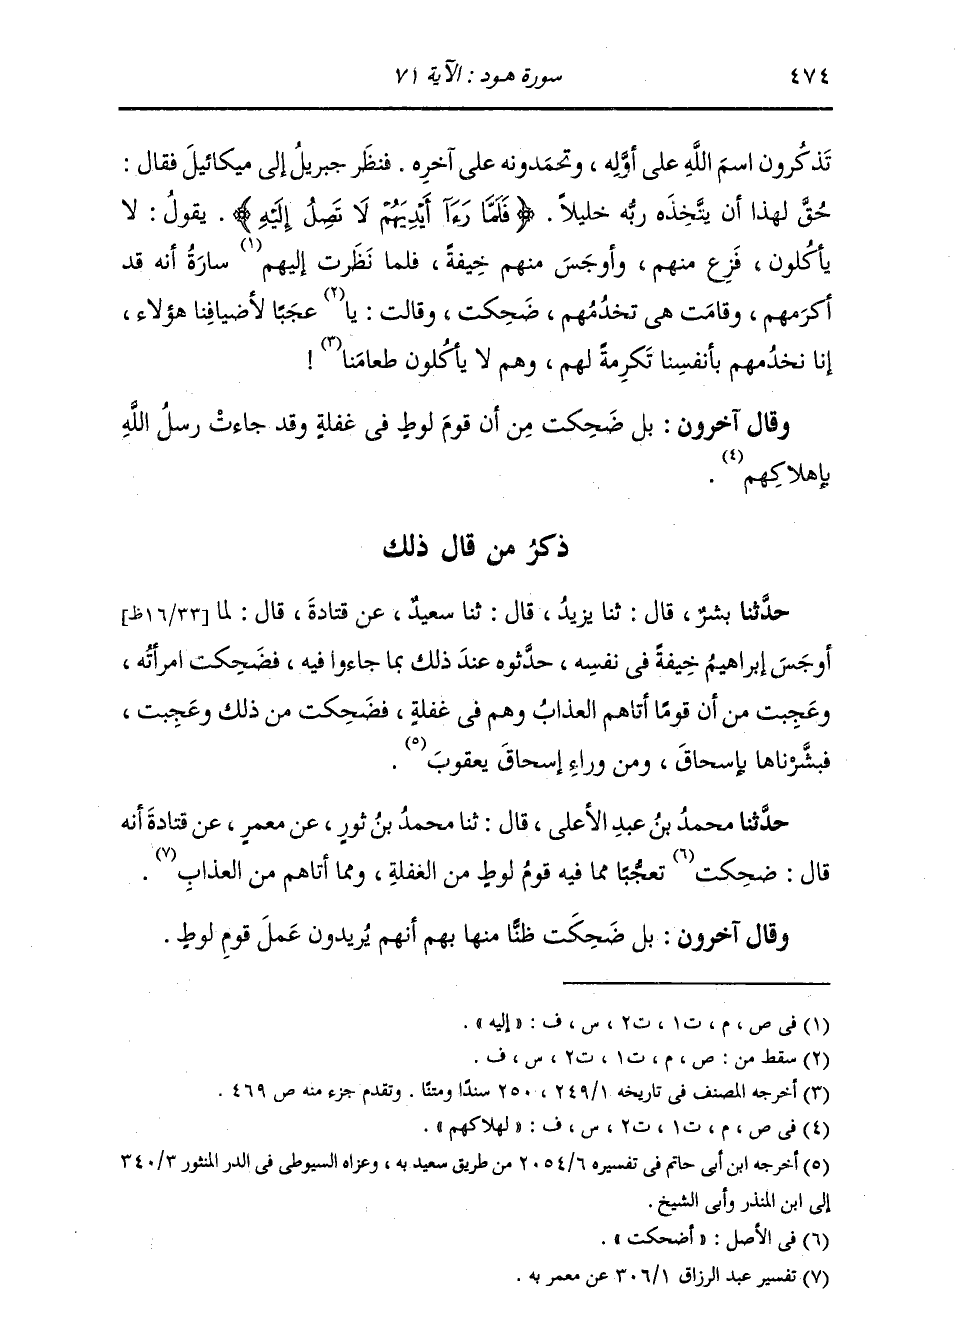 ٤٧٤ سورة هود : الآية ٧١
تَذكُرون اسمَ اللَّهِ على أوَّلِه ، وتحمَدونه على آخرِه . فنظَر جبريلُ إلى ميكائيلَ فقال :
حُقَّ لهذا أن يتَّخِذَه ربُّه خليلاً . ﴿ فَلَمَّا رَءَآ أَيْدِيَهُمْ لَا تَصِلُ إِلَيْهِ ﴾ . يقولُ : لا
يأكُلون ، فَزِع منهم ، وأوجَسَ منهم خِيفةً ، فلما نَظَرت إليهم(١) سارَةُ أنه قد
أكرَمهم ، وقامَت هى تخدُمُهم ، ضَحِكت ، وقالت : يا(٢) عجَبًا لأضيافِنا هؤلاء ،
إنا نخدُمهم بأنفسِنا تَكرِمةً لهم ، وهم لا يأكُلون طعامَنا(٣) !
وقال آخرون : بل ضَحِكت مِن أن قومَ لوطٍ فى غفلةٍ وقد جاءتْ رسلُ اللَّهِ
بإهلاكِهم(٤) .
ذكرُ من قال ذلك
حدَّثنا بشرٌ ، قال : ثنا يزيدُ ، قال : ثنا سعيدٌ ، عن قتادةَ ، قال : لما [١٦/٣٣ظ]
أوجَسَ إبراهيمُ خِيفةً فى نفسِه ، حدَّثوه عندَ ذلك بما جاءوا فيه ، فضَحِكت امرأتُه ،
وعَجِبت من أن قومًا أتاهم العذابُ وهم فى غفلةٍ ، فضَحِكت من ذلك وعَجِبت ،
فبشَّرْناها بإسحاقَ ، ومن وراءِ إسحاقَ يعقوبَ(٥) .
حدَّثنا محمدُ بنُ عبدِ الأعلى ، قال : ثنا محمدُ بنُ ثورٍ ، عن معمرٍ ، عن قتادةَ أنه
قال : ضحِكت(٦) تعجُّبًا مما فيه قومُ لوطٍ من الغفلةِ ، ومما أتاهم من العذابِ(٧) .
وقال آخرون : بل ضَحِكَت ظنًّا منها بهم أنهم يُريدون عَملَ قومِ لوطٍ .
(١) فى ص ، م ، ت١ ، ت٢ ، س ، ف : « إليه » .
(٢) سقط من : ص ، م ، ت١ ، ت٢ ، س ، ف .
(٣) أخرجه المصنف فى تاريخه ٢٤٩/١ ، ٢٥٠ سندًا ومتنًا . وتقدم جزء منه ص ٤٦٩ .
(٤) فى ص ، م ، ت١ ، ت٢ ، س ، ف : « لهلاكهم » .
(٥) أخرجه ابن أبى حاتم فى تفسيره ٢٠٥٤/٦ من طريق سعيد به ، وعزاه السيوطى فى الدر المنثور ٣٤٠/٣
إلى ابن المنذر وأبى الشيخ .
(٦) فى الأصل : « أضحكت » .
(٧) تفسير عبد الرزاق ٣٠٦/١ عن معمر به .